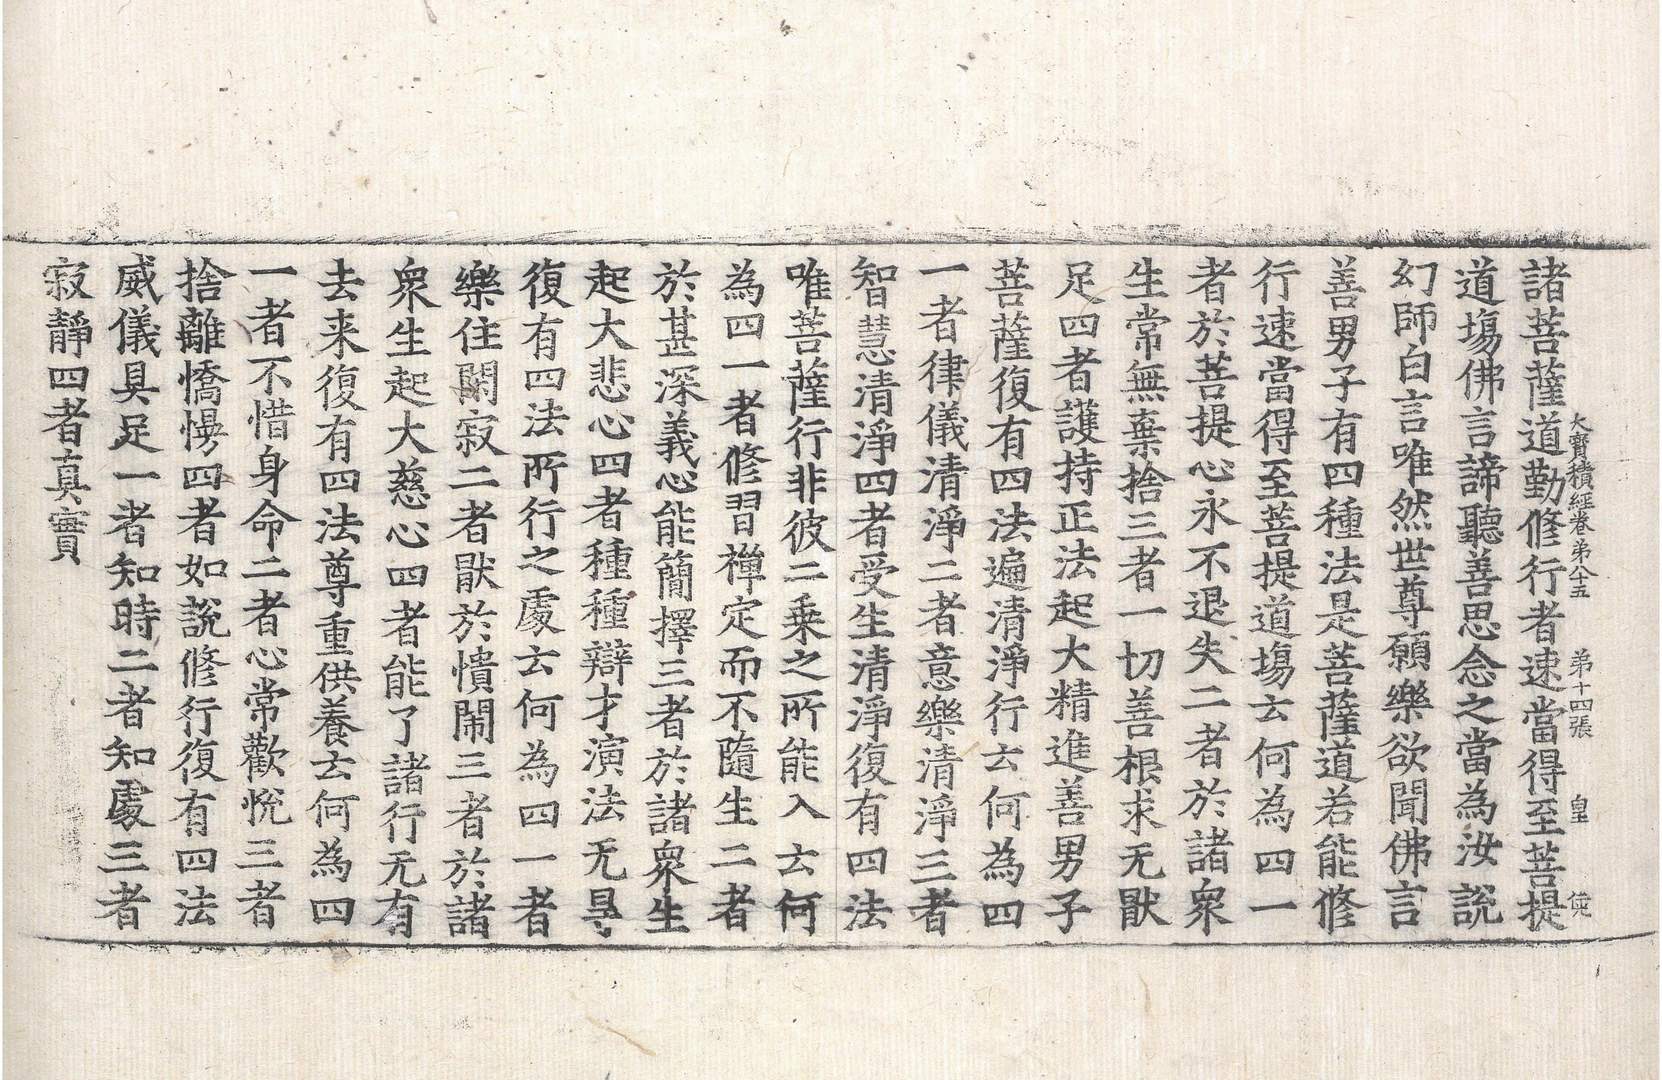 大寶積經卷第八十五 第十四張 皇
諸菩薩道勤修行者速當得至菩提
道場佛言諦聽善思念之當為汝說
幻師白言唯然世尊願樂欲聞佛言
善男子有四種法是菩薩道若能修
行速當得至菩提道場云何為四一
者於菩提心永不退失二者於諸衆
生常無棄捨三者一切善根求无猒
足四者護持正法起大精進善男子
菩薩復有四法遍清淨行云何為四
一者律儀清淨二者意樂清淨三者
智慧清淨四者受生清淨復有四法
唯菩薩行非彼二乗之所能入云何
為四一者修習禪定而不隨生二者
於甚深義心能簡擇三者於諸衆生
起大悲心四者種種辯才演法无㝵
復有四法所行之處云何為四一者
樂住閑寂二者猒於憒鬧三者於諸
衆生起大慈心四者能了諸行无有
去来復有四法尊重供養云何為四
一者不惜身命二者心常歡悅三者
捨離憍慢四者如說修行復有四法
威儀具足一者知時二者知處三者
寂靜四者真實